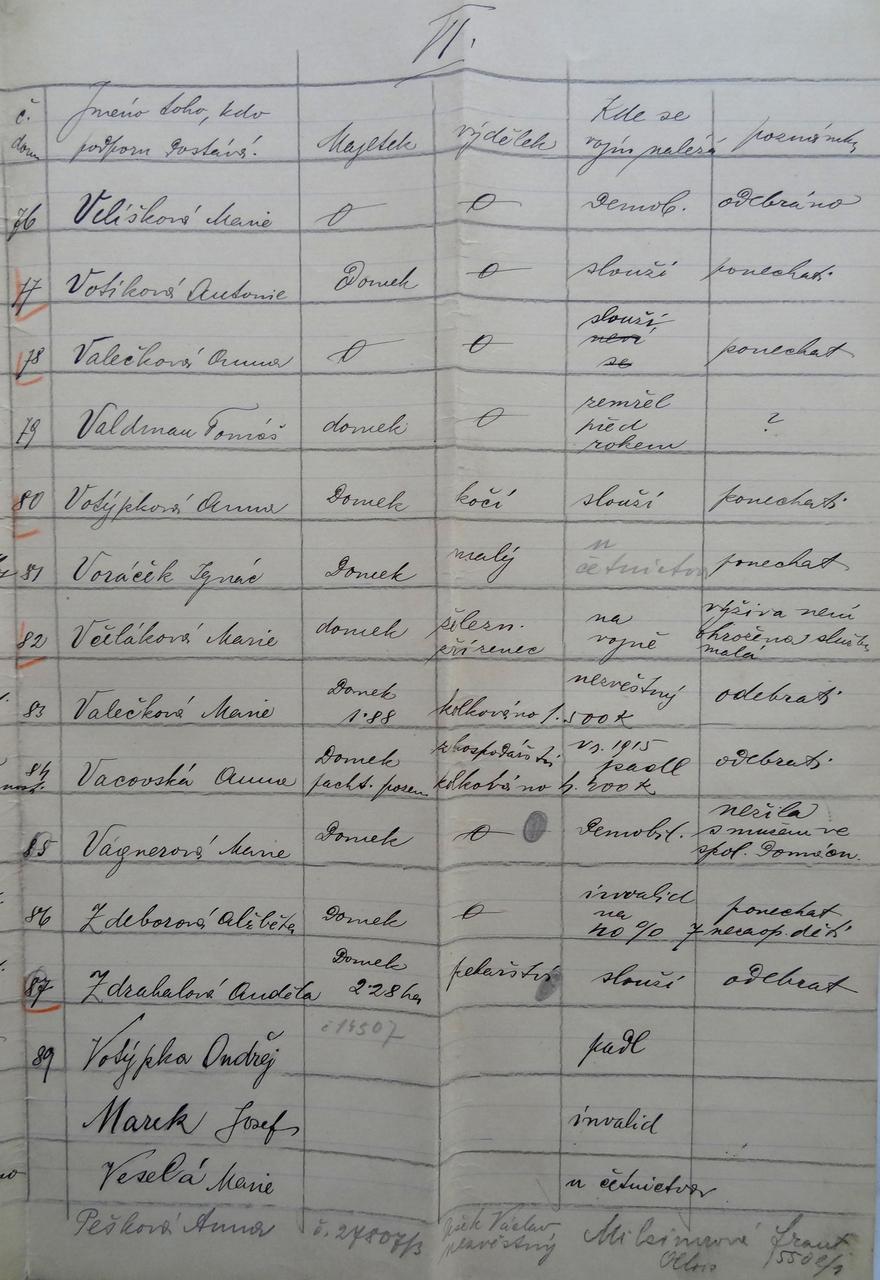 VI.
č. Jméno toho, kdo Kde se
domu podporu dostává. Majetek výdělek vojín nalézá poznámka
76 Velíšková Marie 0 0 Demob. odebráno
77 Votíková Antonie Domek 0 slouží ponechati
slouží,
78 Valečková Anna 0 0 není ponechat
se
zemřel
79 Valdman Tomáš domek 0 před ?
rokem
80 Votýpková Anna Domek kočí slouží ponechati
81 Voráček Ignác Domek malý u ponechat
četnictva
82 Včeláková Marie domek železn. na výživa není
zřízenec vojně ohrožena služba
malá
83 Valečková Marie Domek nezvěstný odebrati
1·88 kolkováno 1.500 K
84 Vacovská Anna Domek z hospodářství v r. 1915 odebrati
pacht. pozem kolkováno 4.200 K padl
85 Vágnerová Marie Domek 0 Demobil. nežila
s mužem ve
spol. Domácn.
86 Zdeborová Alžběta Domek 0 invalid ponechat
na
20 % 7 nezaop. dětí
87 Zdrahalová Anděla Domek pekařství slouží odebrat
2·28 ha
č 14507
89 Votýpka Ondřej padl
Marek Josef invalid
Veselá Marie u četnictva
Pešková Anna č. 27807/3 Pešek Václav
nezvěstný